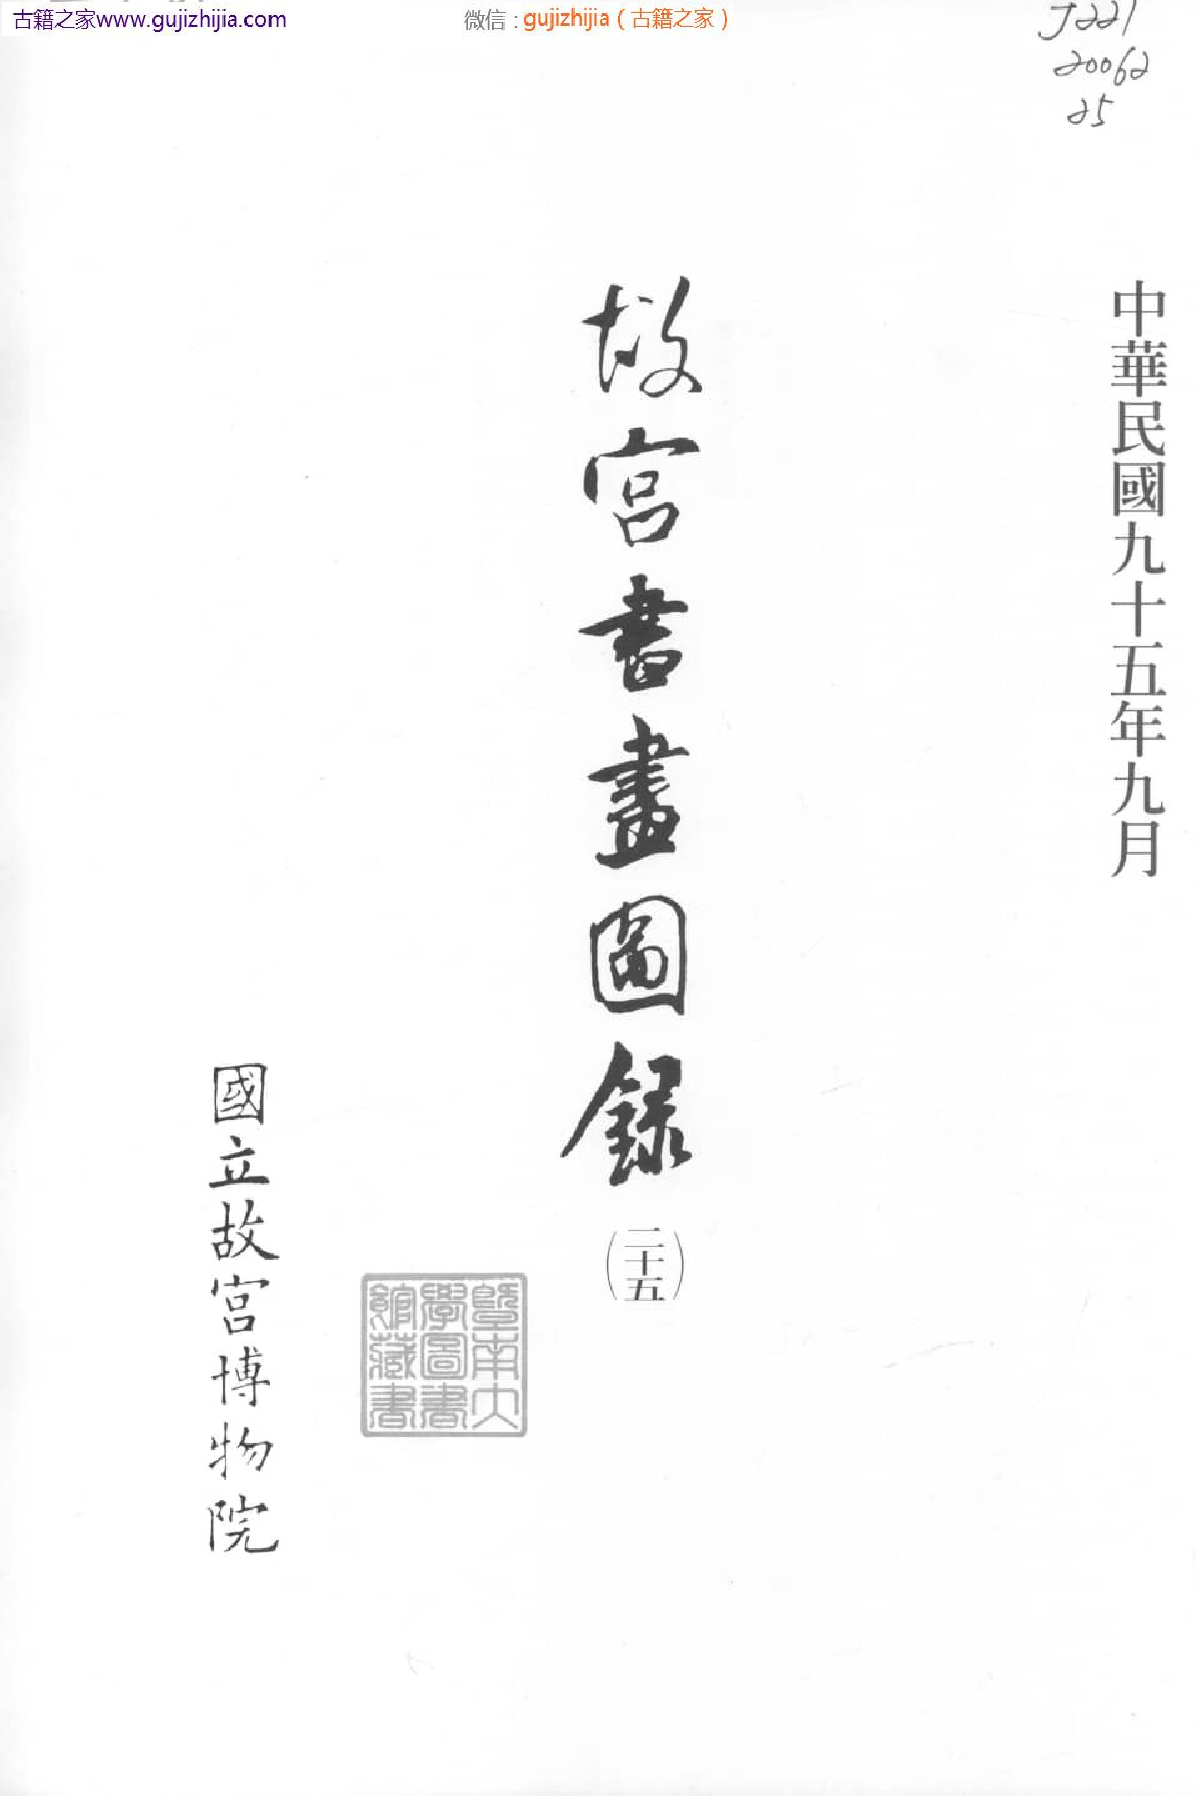 古籍之家www.gujizhijia.com
微信：gujizhijia（古籍之家）
J221
20062
25
中華民國九十五年九月
故宮書畫圖錄
（二十五）
暨南大
學圖書
館藏書
國立故宮博物院